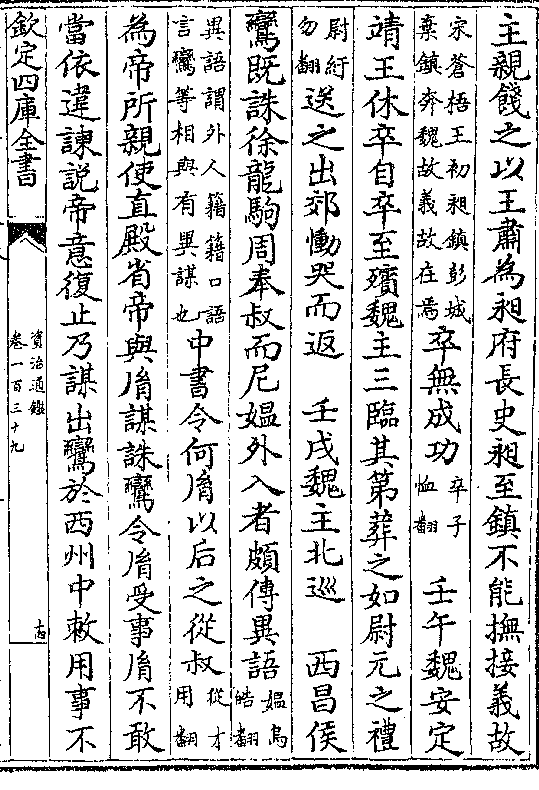 主親餞之以王肅為昶府長史昶至鎮不能撫接義故
宋蒼梧王初昶鎮彭城
棄鎮奔魏故義故在焉
卒無成功
卒子
恤翻
壬午魏安定
靖王休卒自卒至殯魏主三臨其第葬之如尉元之禮
尉紆
勿翻
送之出郊慟哭而返　壬戌魏主北巡　西昌侯
鸞既誅徐龍駒周奉叔而尼媪外入者頗傳異語
媪烏
皓翻
異語謂外人籍籍口語
言鸞等相與有異謀也
中書令何𦙍以后之從叔
從才
用翻
為帝所親使直殿省帝與𦙍謀誅鸞令𦙍受事𦙍不敢
當依違諫説帝意復止乃謀出鸞於西州中敕用事不
欽定四庫全書
資治通鑑
卷一百三十九
十四